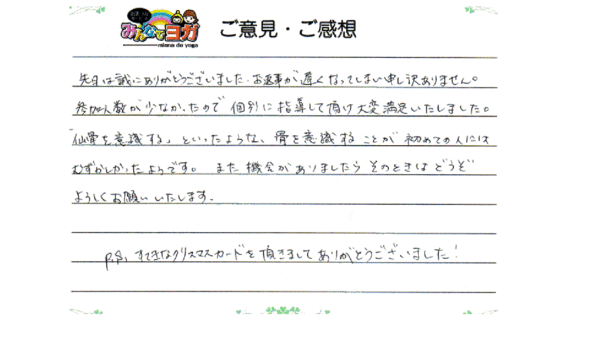 みんなでヨガ
minna de yoga
ご意見・ご感想
先日は誠にありがとうございました。お返事が遅くなってしまい申し訳ありません。
参加人数が少なかったので個別に指導して頂け大変満足いたしました。
「仙骨を意識する」といったような、骨を意識することが初めての人には
むずかしかったようです。また機会がありましたらそのときはどうぞ
よろしくお願いいたします。
P.S. すてきなクリスマスカードを頂きましてありがとうございました!